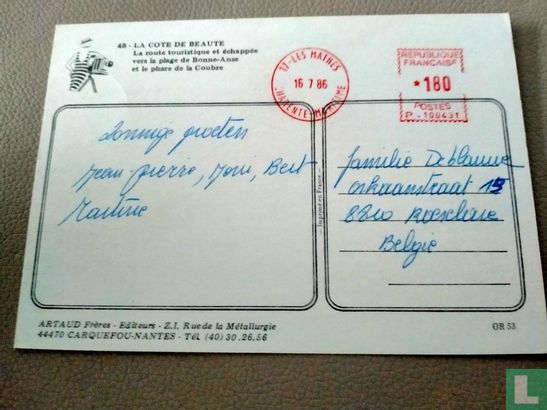 48 - LA COTE DE BEAUTE
La route touristique et échappée
vers la plage de Bonne-Anse
et le phare de la Coubre
17-LES MATHES
16 7 86
CHARENTE-MARITIME
REPUBLIQUE
FRANCAISE
*180
POSTES
P.-100431
Zonnige groeten
Jean-pierre, Joni, Bert
Martine
Imprimé en France
familie Deblauwe
straat 19
8800 Roeselare
Belgie
ARTAUD Frères - Editeurs - Z.I. Rue de la Métallurgie
44470 CARQUEFOU-NANTES - Tél. (40) 30.26.56
OR 53
L